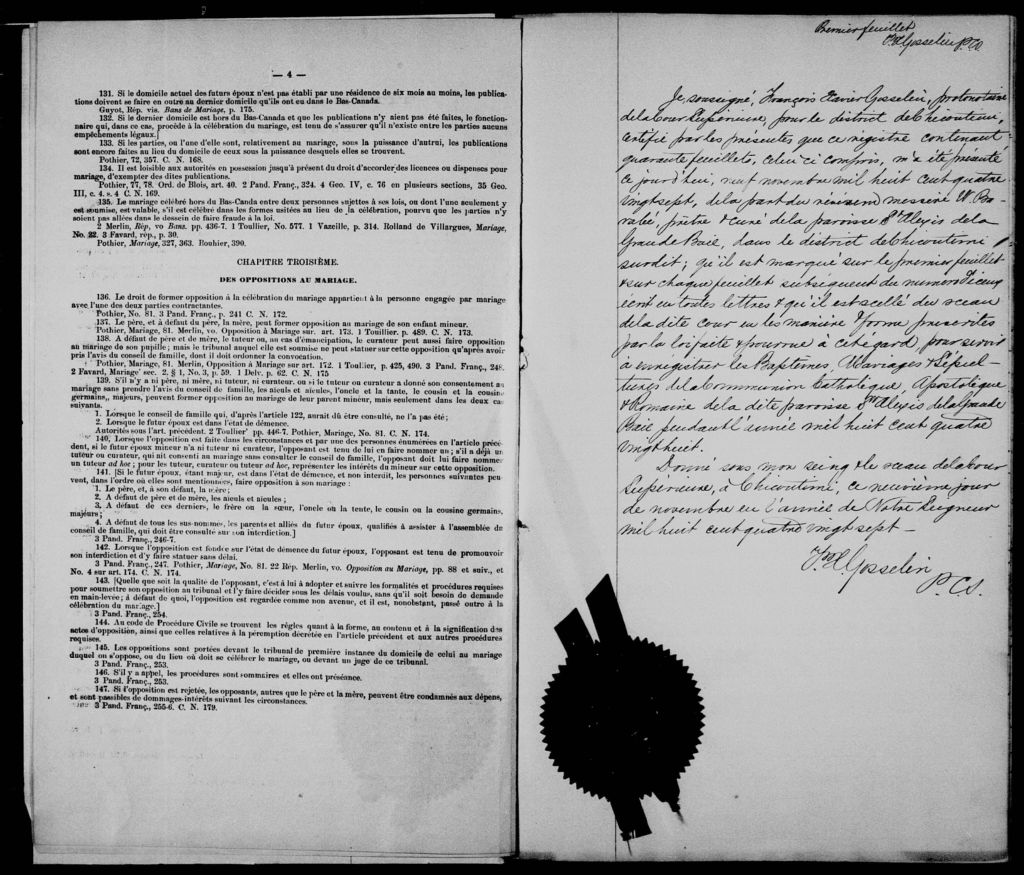 — 4 —
131. Si le domicile actuel des futurs époux n'est pas établi par une résidence de six mois au moins, les publica-
tions doivent se faire en outre au dernier domicile qu'ils ont eu dans le Bas-Canada.
Guyot, Rép. vis. Bans de Mariage, p. 175.
132. Si le dernier domicile est hors du Bas-Canada et que les publications n'y aient pas été faites, le fonction-
naire qui, dans ce cas, procède à la célébration du mariage, est tenu de s'assurer qu'il n'existe entre les parties aucuns
empêchements légaux.]
133. Si les parties, ou l'une d'elle sont, relativement au mariage, sous la puissance d'autrui, les publications
sont encore faites au lieu du domicile de ceux sous la puissance desquels elles se trouvent.
Pothier, 72, 357. C. N. 168.
134. Il est loisible aux autorités en possession jusqu'à présent du droit d'accorder des licences ou dispenses pour
mariage, d'exempter des dites publications.
Pothier, 77, 78. Ord. de Blois, art. 40. 2 Pand. Franç., 324. 4 Geo. IV, c. 76 en plusieurs sections, 35 Geo.
III, c. 4. s. 4 C. N. 169.
135. Le mariage célébré hors du Bas-Canda entre deux personnes sujettes à ses lois, ou dont l'une seulement y
est soumise, est valable, s'il est célébré dans les formes usitées au lieu de la célébration, pourvu que les parties n'y
soient pas allées dans le dessein de faire fraude à la loi.
2 Merlin, Rép, vo Bans. pp. 436-7. 1 Toullier, No. 577. 1 Vazeille, p. 314. Rolland de Villargues, Mariage,
No. 22. 3 Favard, rép., p. 30.
Pothier, Mariage, 327, 363. Rouhier, 390.
CHAPITRE TROISIÈME.
DES OPPOSITIONS AU MARIAGE.
136. Le droit de former opposition à la célébration du mariage appartient à la personne engagée par mariage
avec l'une des deux parties contractantes.
Pothier, No. 81. 3 Pand. Franç., p. 241 C. N. 172.
137. Le père, et à défaut du père, la mère, peut former opposition au mariage de son enfant mineur.
Pothier, Mariage, 81. Merlin, vo. Opposition à Mariage sur. art. 173. 1 Touillier. p. 489. C. N. 173.
138. A défaut de père et de mère, le tuteur ou, au cas d'émancipation, le curateur peut aussi faire opposition
au mariage de son pupille; mais le tribunal auquel elle est soumise ne peut statuer sur cette opposition qu'après avoir
pris l'avis du conseil de famille, dont il doit ordonner la convocation.
Pothier, Mariage, 81. Merlin, Opposition à Mariage sur art. 172. 1 Toullier, p. 425, 490. 3 Pand. Franç., 248.
2 Favard, Mariage sec. 2, § 1, No. 3, p. 59. 1 Delv. p. 62. C. N. 175
139. S'il n'y a ni père, ni mère, ni tuteur, ni curateur. ou si le tuteur ou curateur a donné son consentement au
mariage sans prendre l'avis du conseil de famille, les aïeuls et aïeules, l'oncle et la tante, le cousin et la cousine
germains,, majeurs, peuvent former opposition au mariage de leur parent mineur, mais seulement dans les deux cas
suivants.
1. Lorsque le conseil de famille qui, d'après l'article 122, aurait dû être consulté, ne l'a pas été;
2. Lorsque le futur époux est dans l'état de démence.
Autorités sous l'art. précédent. 2 Toullier pp. 446-7. Pothier, Mariage, No. 81. C. N. 174.
140. Lorsque l'opposition est faite dans les circonstances et par une des personnes énumérées en l'article précé-
dent, si le futur époux mineur n'a ni tuteur ni curateur, l'opposant est tenu de lui en faire nommer un; s'il a déjà un
tuteur ou curateur, qui ait consenti au mariage sans consulter le conseil de famille, l'opposant doit lui faire nommer
un tuteur ad hoc; pour les tuteur, curateur ou tuteur ad hoc, représenter les intérêts du mineur sur cette opposition.
141. [Si le futur époux, étant majeur, est dans l'état de démence, et non interdit, les personnes suivantes peu-
vent, dans l'ordre où elles sont mentionnées, faire opposition à son mariage:
1. Le père, et, à son défaut, la mère;
2. A défaut de père et de mère, les aïeuls et aïeules;
3. A défaut de ces derniers, le frère ou la sœur, l'oncle ou la tente, le cousin ou la cousine germains,
majeurs;
4. A défaut de tous les sus-nommés, les parents et alliés du futur époux, qualifiés à assister à l'assemblée du
conseil de famille, qui doit être consultée sur son interdiction.]
3 Pand. Franç., 246-7.
142. Lorsque l'opposition est fondée sur l'état de démence du futur époux, l'opposant est tenu de promouvoir
son interdiction et d'y faire statuer sans délai.
3 Pand. Franç., 247. Pothier, Mariage, No. 81. 22 Rép. Merlin, vo. Opposition au Mariage, pp. 88 et suiv., et
No. 4 sur art. 174. C. N. 174.
143. [Quelle que soit la qualité de l'opposant, c'est à lui à adopter et suivre les formalités et procédures requises
pour soumettre son opposition au tribunal et l'y faire décider sous les délais voulus, sans qu'il soit besoin de demande
en main-levée; à défaut de quoi, l'opposition est regardée comme non avenue, et il est, nonobstant, passé outre à la
célébration du mariage.]
3 Pand. Franç., 254.
144. Au code de Procédure Civile se trouvent les règles quant à la forme, au contenu et à la signification des
actes d'opposition, ainsi que celles relatives à la péremption décrétée en l'article précédent et aux autres procédures
requises.
145. Les oppositions sont portées devant le tribunal de première instance du domicile de celui au mariage
duquel on s'oppose, ou du lieu où doit se célébrer le mariage, ou devant un juge de ce tribunal.
3 Pand. Franç., 253.
146. S'il y a appel, les procédures sont sommaires et elles ont préséance.
3 Pand. Franç., 253.
147. Si l'opposition est rejetée, les opposants, autres que le père et la mère, peuvent être condamnés aux dépens,
et sont passibles de dommages-intérêts suivant les circonstances.
3 Pand. Franç., 255-6. C. N. 179.
Premier feuillet
F X Gosselin P.C.S.
Je, soussigné, François Xavier Gosselin, protonotaire
de la Cour Supérieure, pour le district de Chicoutimi,
certifie par les présentes que ce registre contenant
quarante feuillets, celui ci compris, m'a été présenté
ce jourd'hui, neuf novembre mil huit cent quatre
vingt sept, de la part du révérend messire W. 
prêtre & curé de la paroisse St Alexis de la
Grande Baie, dans le district de Chicoutimi
susdit; qu'il est marqué sur le premier feuillet
& sur chaque feuillet subséquent du numéro d'iceux
écrit en toutes lettres & qu'il est scellé du sceau
de la dite cour en la manière & forme prescrites
par la loi faite & pourvue à cet égard, pour servir
à enregistrer les Baptêmes, Mariages & Sépul-
tures de la Communion Catholique, Apostolique
& Romaine de la dite paroisse St Alexis de la Grande
Baie pendant l'année mil huit cent quatre
vingt huit.
Donné sous mon seing & le sceau de la Cour
Supérieure, à Chicoutimi, ce neuvième jour
de novembre en l'année de Notre Seigneur
mil huit cent quatre vingt sept —
F X Gosselin
P.C.S.